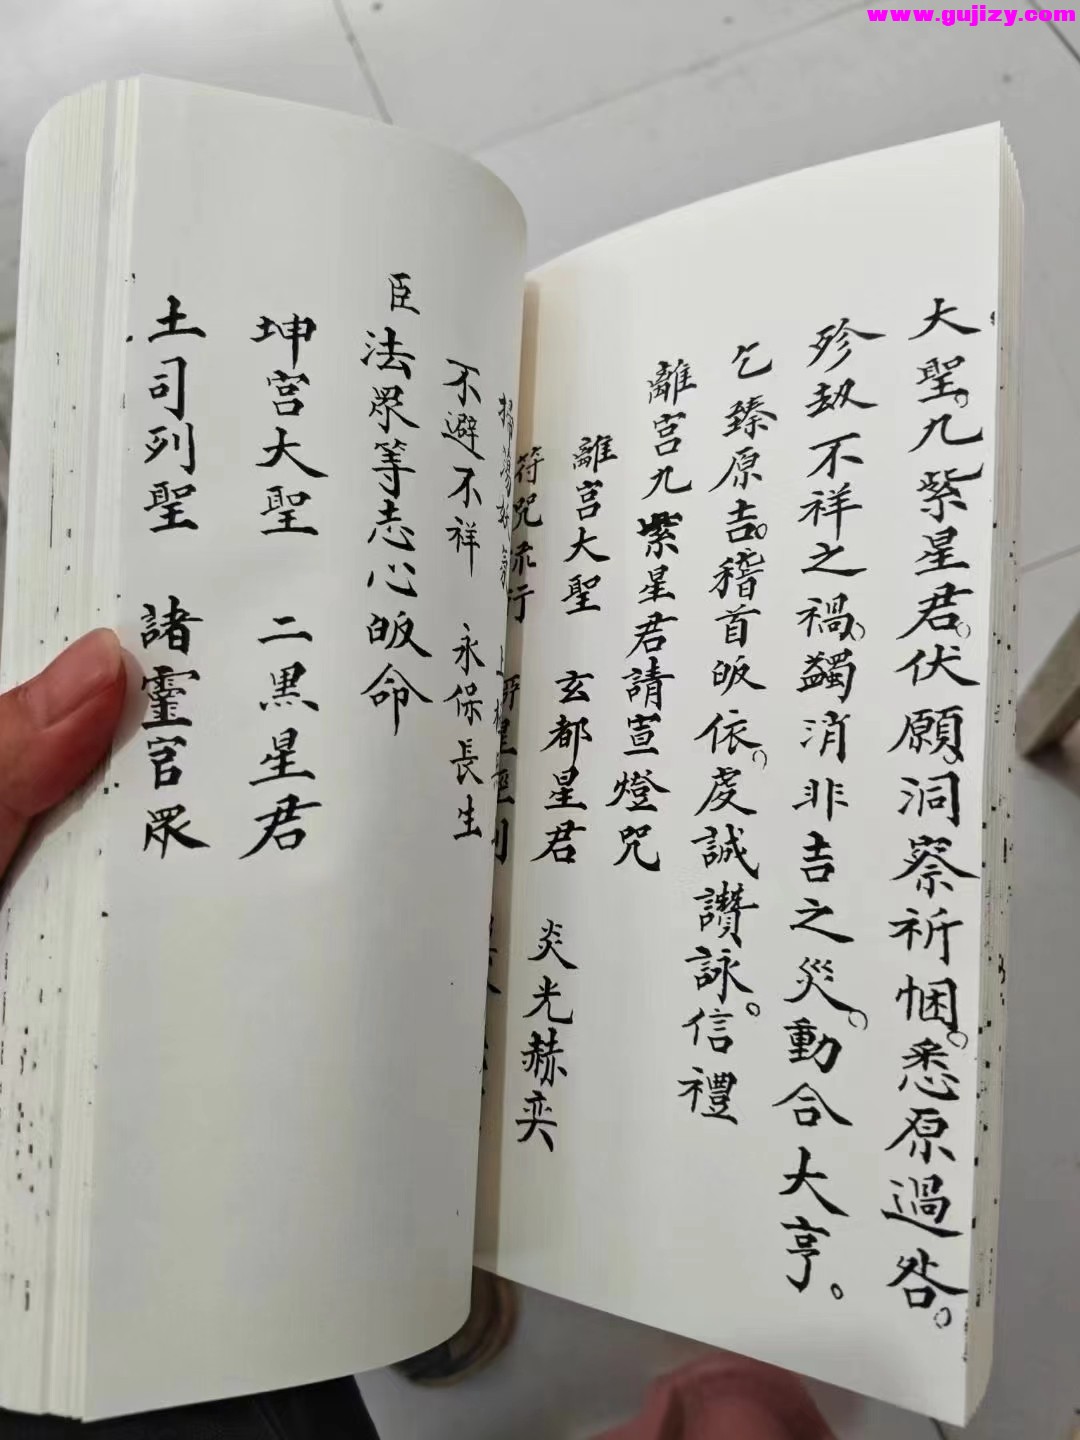 www.gujizy.com
大聖。九紫星君。伏願洞察祈悃。悉原過咎。
殄劫不祥之禍。蠲消非吉之災。動合大亨。
乞臻原吉。稽首皈依。虔誠讚詠。信禮
離宮九紫星君請宣燈咒
離宮大聖 玄都星君 炎光赫奕
符咒流行
不避不祥 永保長生
臣法眾等志心皈命
坤宮大聖 二黑星君
土司列聖 諸靈官眾